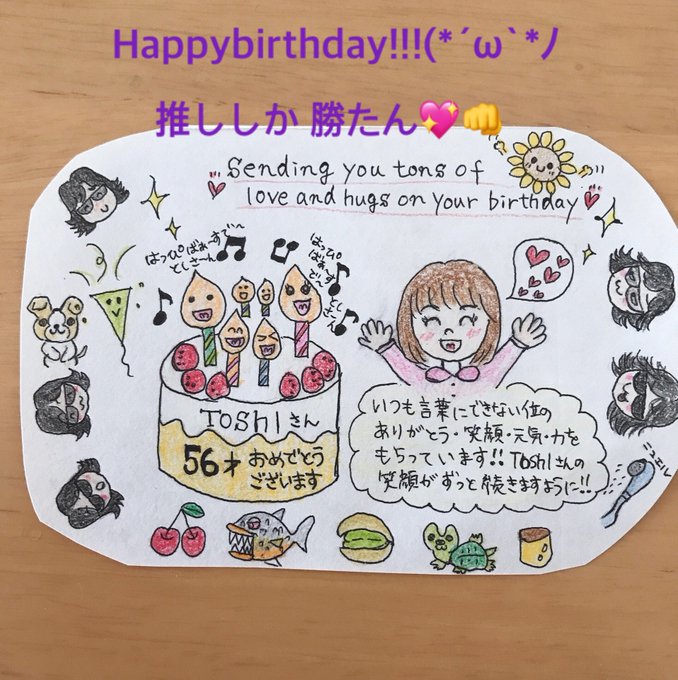 Happybirthday!!!(*´ω`*ﾉ
推ししか 勝たん💖👊
Sending you tons of
love and hugs on your birthday
はっぴばぁーすでー
としさーん
はっぴ
ばぁーす
でー
としさーん
TOSHIさん
56才 おめでとう
ございます
いつも言葉にできない位の
ありがとう・笑顔・元気・力を
もらっています!! TOSHIさんの
笑顔がずっと続きますように!!